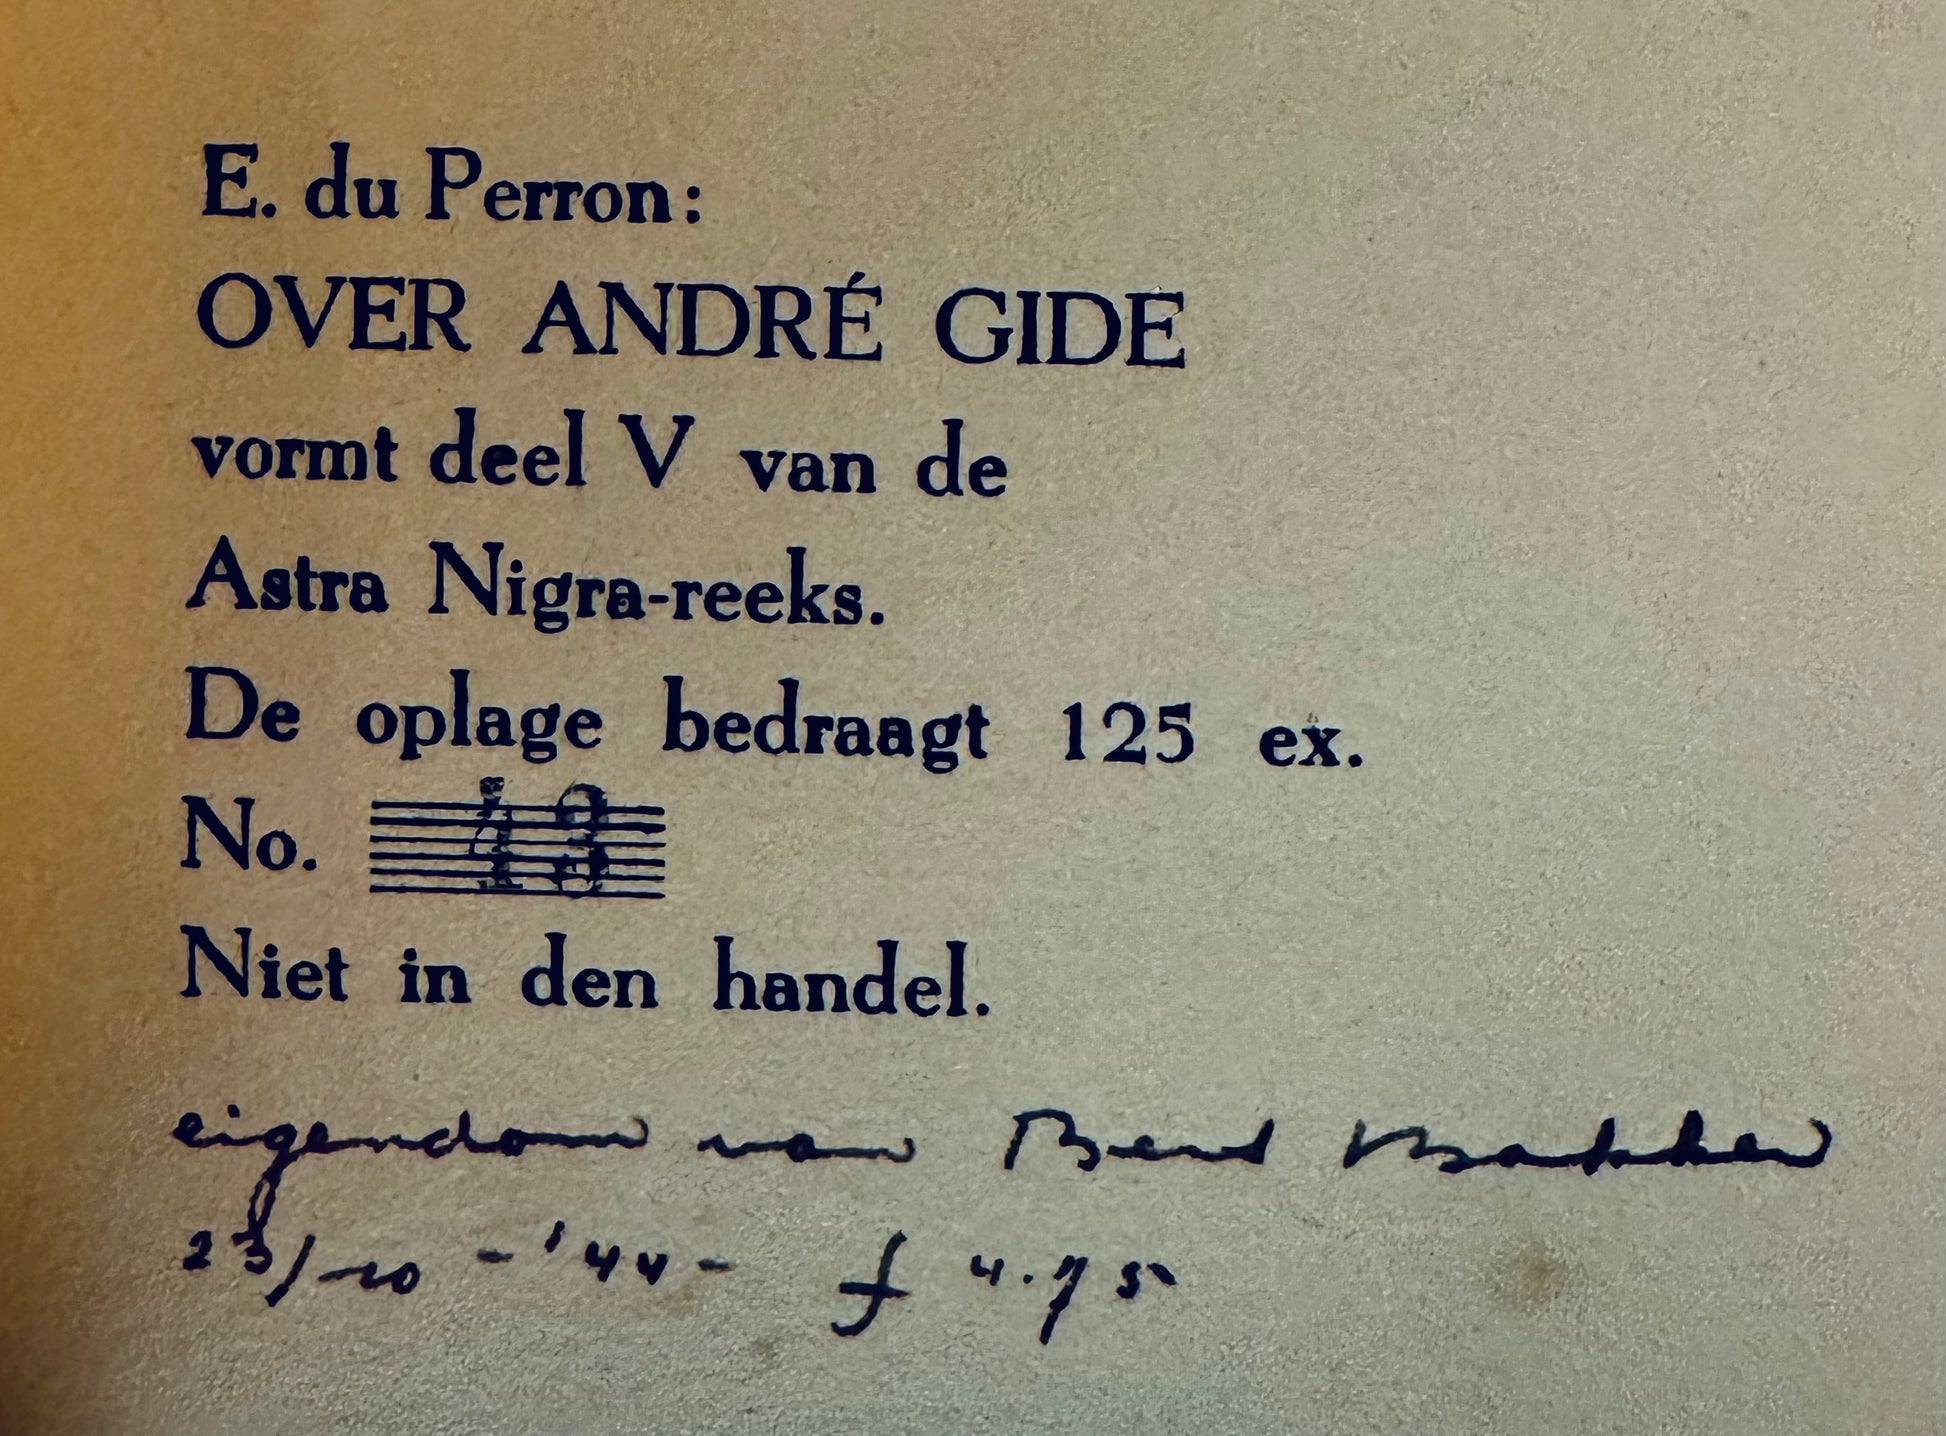 E. du Perron:
OVER ANDRÉ GIDE
vormt deel V van de
Astra Nigra-reeks.
De oplage bedraagt 125 ex.
No.
Niet in den handel.
eigendom van Bert Bakker
23/10 - '44 - f 4.75